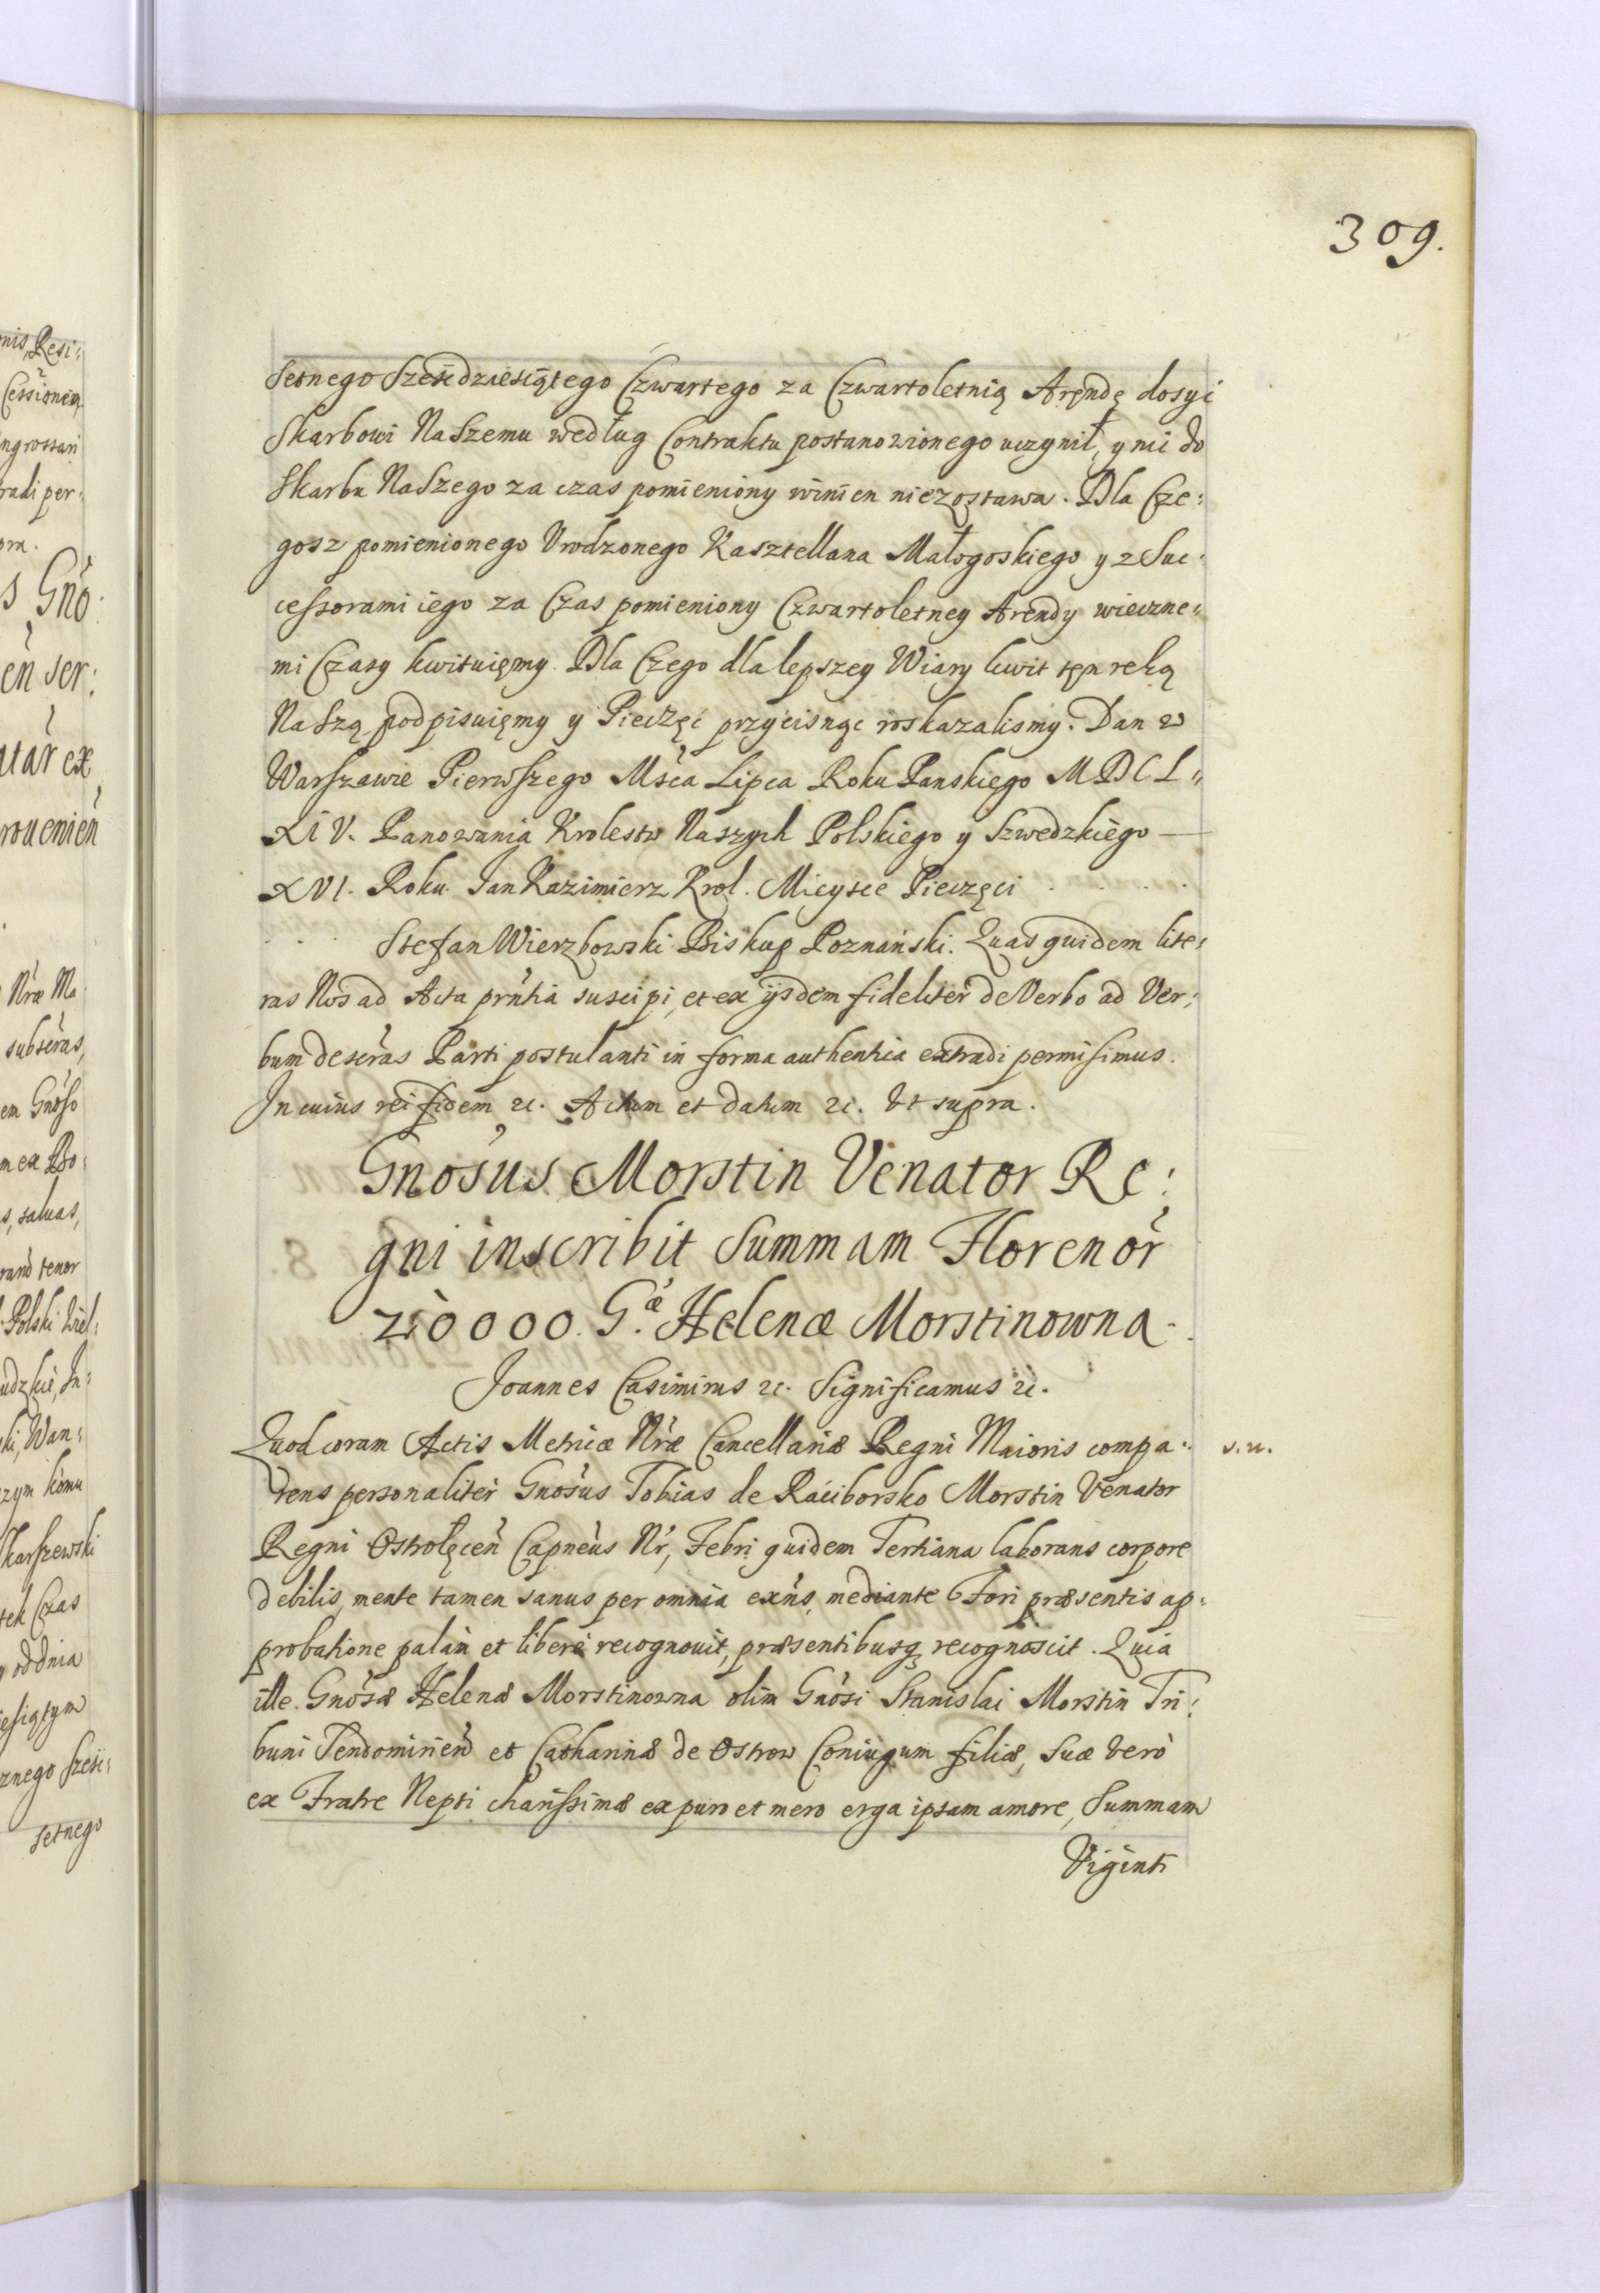 309.
setnego Sześcdziesiątego Czwartego za Czwartoletnią Arendę dosyć
Skarbowi Naszemu według Contraktu postanowionego uczynił, y nic do
Skarbu Naszego za czas pomieniony winien niezostawa. Dla Cze:
gosz pomienionego Urodzonego Kasztellana Małogoskiego y z Suc:
cessorami iego za Czas pomieniony Czwartoletney Arendy wieczne:
mi Czasy kwituięmy. Dla Czego dla lepszey Wiary kwit tęn ręką
Naszą podpisuięmy y Pieczęć przycisnąc roskazalismy. Dan w
Warszawie Pierwszego Mśca Lipca Roku Panskiego MDCL"
XIV. Panowania Krolestw Naszych Polskiego y Szwedzkiego —
XVI. Roku. Jan Kazimierz Krol. Mieysce Pieczęci . . . .
. . . Stefan Wierzbowski Biskup Poznański. Quas quidem lite:
ras Nos ad Acta prńtia suscipi, et ex ijsdem fideliter de Verbo ad Ver:
bum descras Parti postulanti in forma authentica extradi permisimus.
In cuius rei fidem &c. Actum et datum &c. Ut supra.
Gnosus Morstin Venator Re:
gni inscribit Summam Florenor
20000. G.æ Helenæ Morstinowna.
Joannes Casimirus &c. Significamus &c.
Quod coram Actis Metricæ Nræ Cancellariæ Regni Maioris compa: s. n.
rens personaliter Gnosus Tobias de Raciborsko Morstin Venator
Regni Ostrołęcen Capneus Nr, Febri quidem Tertiana laborans corpore
debilis, mente tamen sanus per omnia exns, mediante Fori præsentis ap:
probatione palam et libere recognovit, præsentibusq recognoscit. Quia
ille Gnosæ Helenæ Morstinowna olim Gnosi Stanislai Morstin Tri:
buni Sendomirien et Catharinæ de Ostrow Coniugum filiæ, suæ vero
ex Fratre Nepti charissimæ ex puro et mero erga ipsam amore, Summam
Viginti